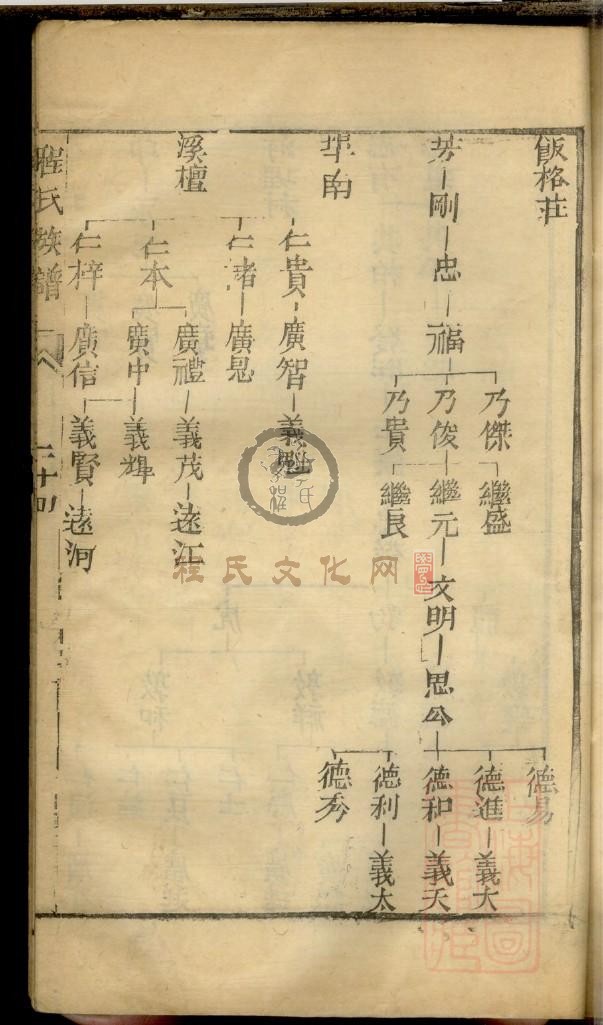 飯格莊
芳 剛 忠 福
乃傑 繼盛
乃俊 繼元 文明 思公
乃貴 繼良
德易
德進 義大
德和 義天
德利 義太
德秀
埠南
仁貴 廣智 義魁
仁諸 廣恩
溪檀
仁本
廣禮 義茂 遠江
廣中 義輝
仁梓 廣信 義賢 遠河
程氏族譜
二十四
程氏文化网